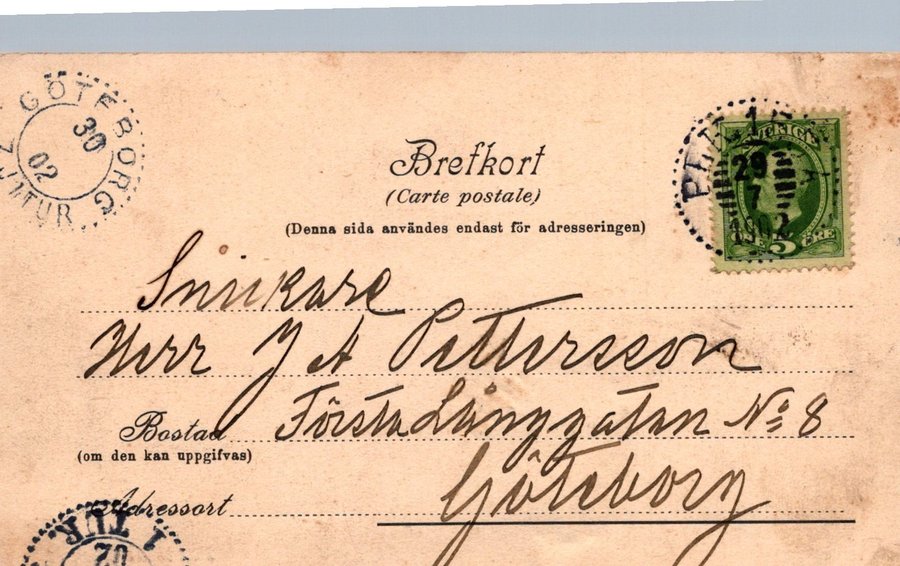 GÖTEBORG
30
02
TUR
Brefkort
(Carte postale)
(Denna sida användes endast för adresseringen)
SVERIGE
29
7
1902
5 ÖRE
Snickare
Herr J A Pettersson
Bostad Första Långgatan No 8
(om den kan uppgifvas)
Göteborg
Adressort
1 TUR
02